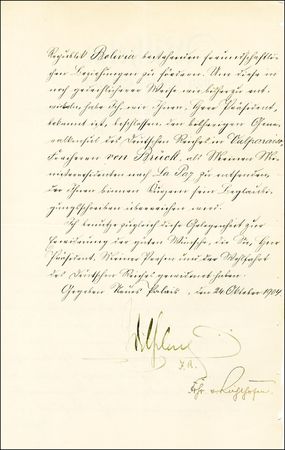 Republik Bolivia bestehenden freundschaftli-
chen Beziehungen zu fördern. Um diese in
noch gedeihlicherer Weise wie bisher zu ent-
wickeln, habe Ich, wie Ihnen, Herr Präsident,
bekannt ist, beschlossen den bisherigen Gene-
ralkonsul des Deutschen Reiches in Valparaiso,
Freiherrn von Reiswitz, als Meinen Mi-
nisterresidenten nach La Paz zu entsenden,
der Ihnen binnen Kurzem sein Beglaubi-
gungsschreiben überreichen wird.
Ich benutze zugleich diese Gelegenheit zur
Erwiderung der guten Wünsche, die Sie, Herr
Präsident, Meiner Person und der Wohlfahrt
des Deutschen Reiches gewidmet haben.
Gegeben Neues Palais, den 24. Oktober 1904
Wilhelm
I.R.
Frhr. v. Richthofen.